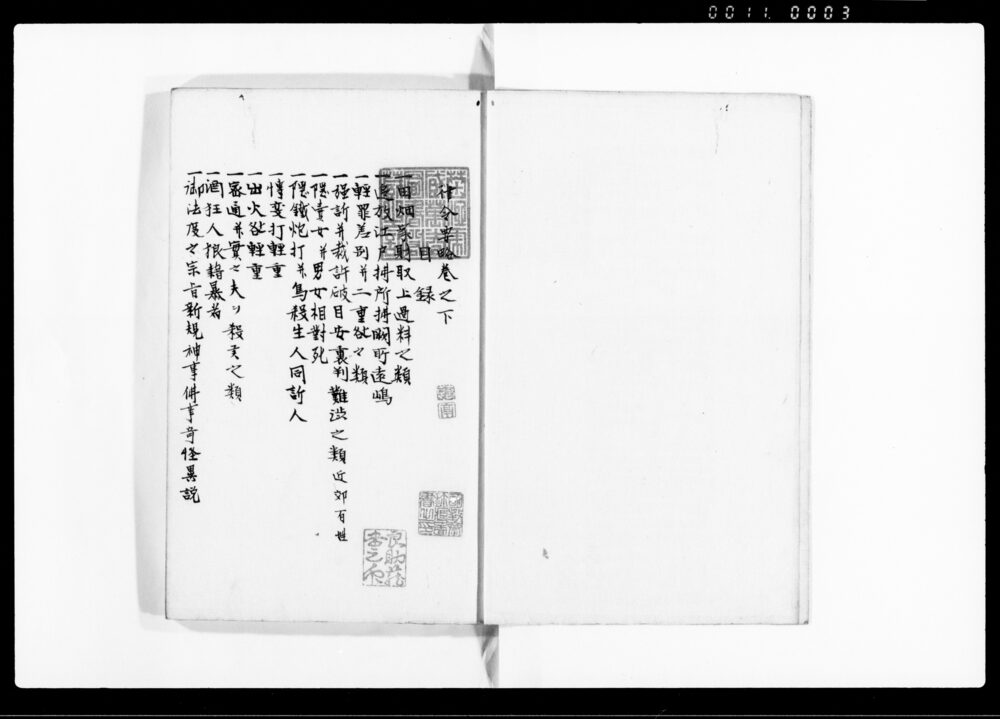 0011. 0003
律令要略巻之下
目録
一田畑家財取上過料之類
一追放江戸拂所拂國所遠嶋
一輕罪差別并二重御仕置之類
一強訴并裁許破目安裏判難渋之類近郊百姓
一隠賣女并男女相對死
一隠鐵炮打并鳥殺生人同訴人
一博奕打輕重
一出火咎輕重
一密通并實之夫ヲ殺害之類
一酒狂人狼藉暴者
一御法度之宗旨新規神事佛事奇怪異説